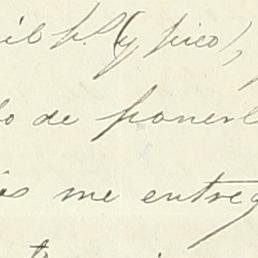 mil ps. (y pico),
lo de ponerl
és me entreg